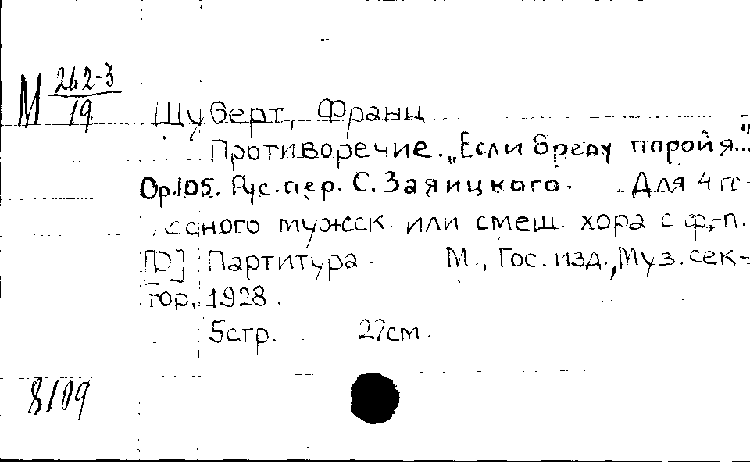 М 262-3
19
Шуберт, Франц
Противоречие. „Если бреду порой я..."
Op.105. Рус. пер. С. Заяицкого. Для 4 го-
лосного мужск или смеш. хора с ф.-п.
Партитура. М., Гос. изд., Муз. сек-
тор, 1928.
5стр. 27см.
8109